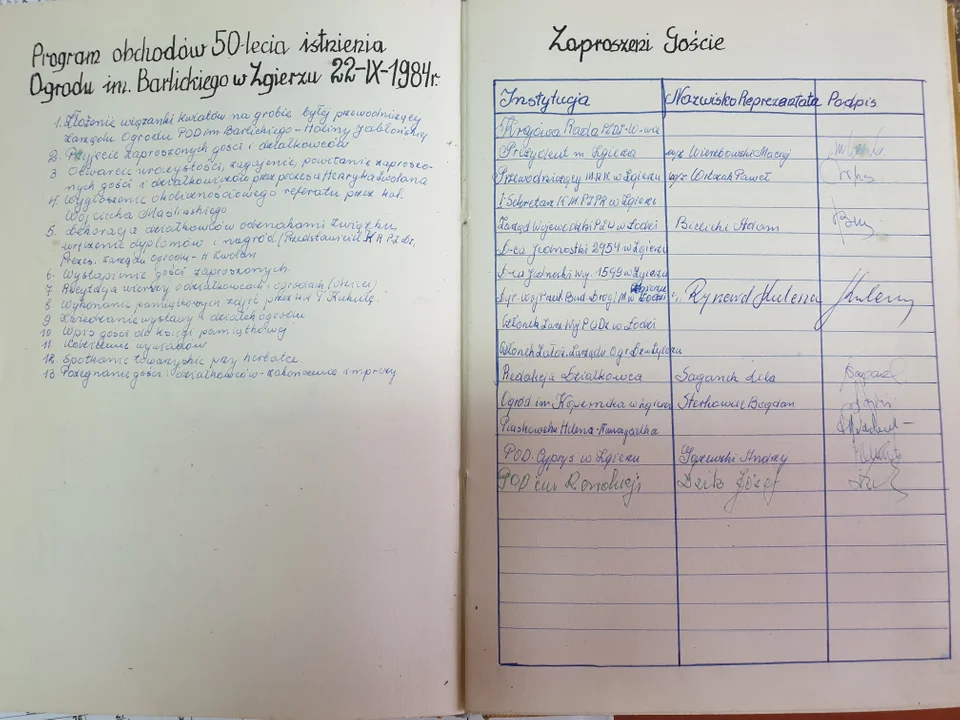 Program obchodów 50-lecia istnienia
Ogrodu im. Barlickiego w Zgierzu 22-IX-1984r.
1. Złożenie wiązanki kwiatów na grobie byłej przewodniczącej
Zarządu Ogrodu POD im. Barlickiego - Haliny Jabłońskiej
2. Przyjęcie zaproszonych gości i działkowców
3. Otwarcie uroczystości, zagajenie, powitanie zaproszo-
nych gości i działkowiczów przez prezesa Henryka Kwolana
4. Wygłoszenie okolicznościowego referatu przez kol.
Wojciecha
5. Dekoracja działkowców odznakami Związku,
wręczenie dyplomów i nagród / Przedstawiciel
Prezes. Zarządu Ogrodu - H Kwolan
6. Wystąpienie gości zaproszonych.
7 Recytacja wierszy o działkowcach i ogrodach
8 Wykonanie pamiątkowych zdjęć przez kol T. Kukułę.
9 Zwiedzanie wystawy i działek ogrodu
10 Wpis gości do księgi pamiątkowej
11 Udzielenie wywiadów
12 Spotkanie towarzyskie przy herbatce.
13 Pożegnanie gości i działkowców - zakończenie imprezy
Zaproszeni Goście
Instytucja Nazwisko Reprezentata Podpis
Krajowa Rada
Prezydent m. Zgierza mgr Wierzbowski Maciej
Przewodniczący M.R.N. w Zgierzu mgr Wilczak Paweł
I Sekretarz K.M. PZPR w Zgierzu
Zarząd Wojewódzki PZD w Łodzi Bielicki Adam
D-ca Jednostki 2954 w Zgierzu
D-ca Jednostki Wy. 1549 w Zgierzu
Rynard Kulesza
Członek w Łodzi
Członek Założ. Zarządu Ogr.
Redakcja Działkowca Saganek Lila
Ogród im. Kopernika w Zgierzu Bogdan
Piaskowska Helena
POD. Cyprys w Zgierzu Andrzej
POD im Rewolucji Józef